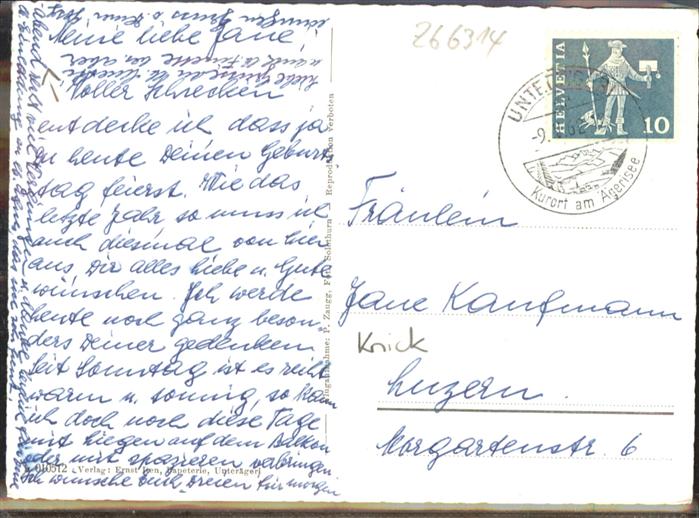 266314
Meine liebe Jane,
Voller Schrecken
entdecke ich dass ja
du heute Deinen Geburts
tag feierst. Wie das
letzte Jahr so muss ich
auch diesmal von hier
aus, Dir alles liebe u. Gute
wünschen. Ich werde
heute noch ganz beson-
ders Deiner gedenken
Seit Sonntag ist es recht
warm u. sonnig, so kann
ich doch noch diese Tage
mit liegen auf dem Balkon
oder mit spazieren verbringen
Ich wünsche Euch Dreien für morgen
Abend recht viel
010512 Verlag: Ernst Iten, Papeterie, Unterägeri
Flugaufnahme: P. Zaugg, Solothurn Reproduktion verboten
HELVETIA
10
UNTER
-9.
Kurort am Ägerisee
Fräulein
Jane Kaufmann
Knick
Luzern.
Morgartenstr. 6